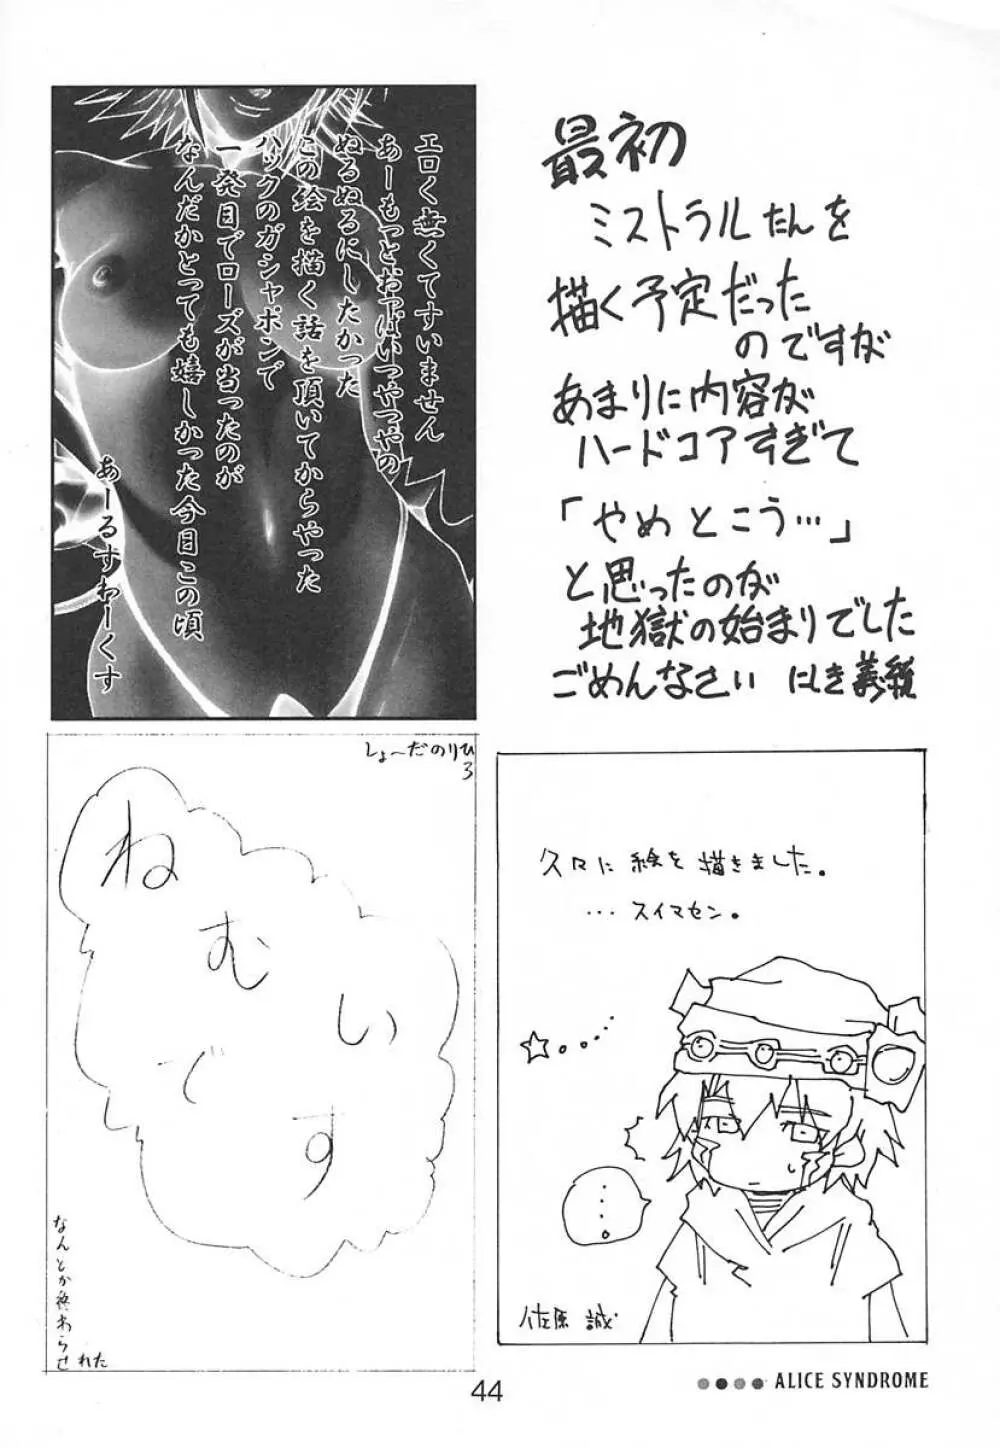 エロく無くてすいません
あーもっとおっぱいつやつやの
ぬるぬるにしたかった
この絵を描く話を頂いてからやった
ハックのガシャポンで
一発目でローズが当ったのが
なんだかとっても嬉しかった今日この頃
あーるすわーくす
最初
ミストラルたんを
描く予定だった
のですが
あまりに内容が
ハードコアすぎて
「やめとこう…」
と思ったのが
地獄の始まりでした
ごめんなさい にしき義統
しょ〜だのりひろ
ねむいです
なんとか終わらせれた
久々に絵を描きました。
…スイマセン。
…。
佐原 誠
44
ALICE SYNDROME